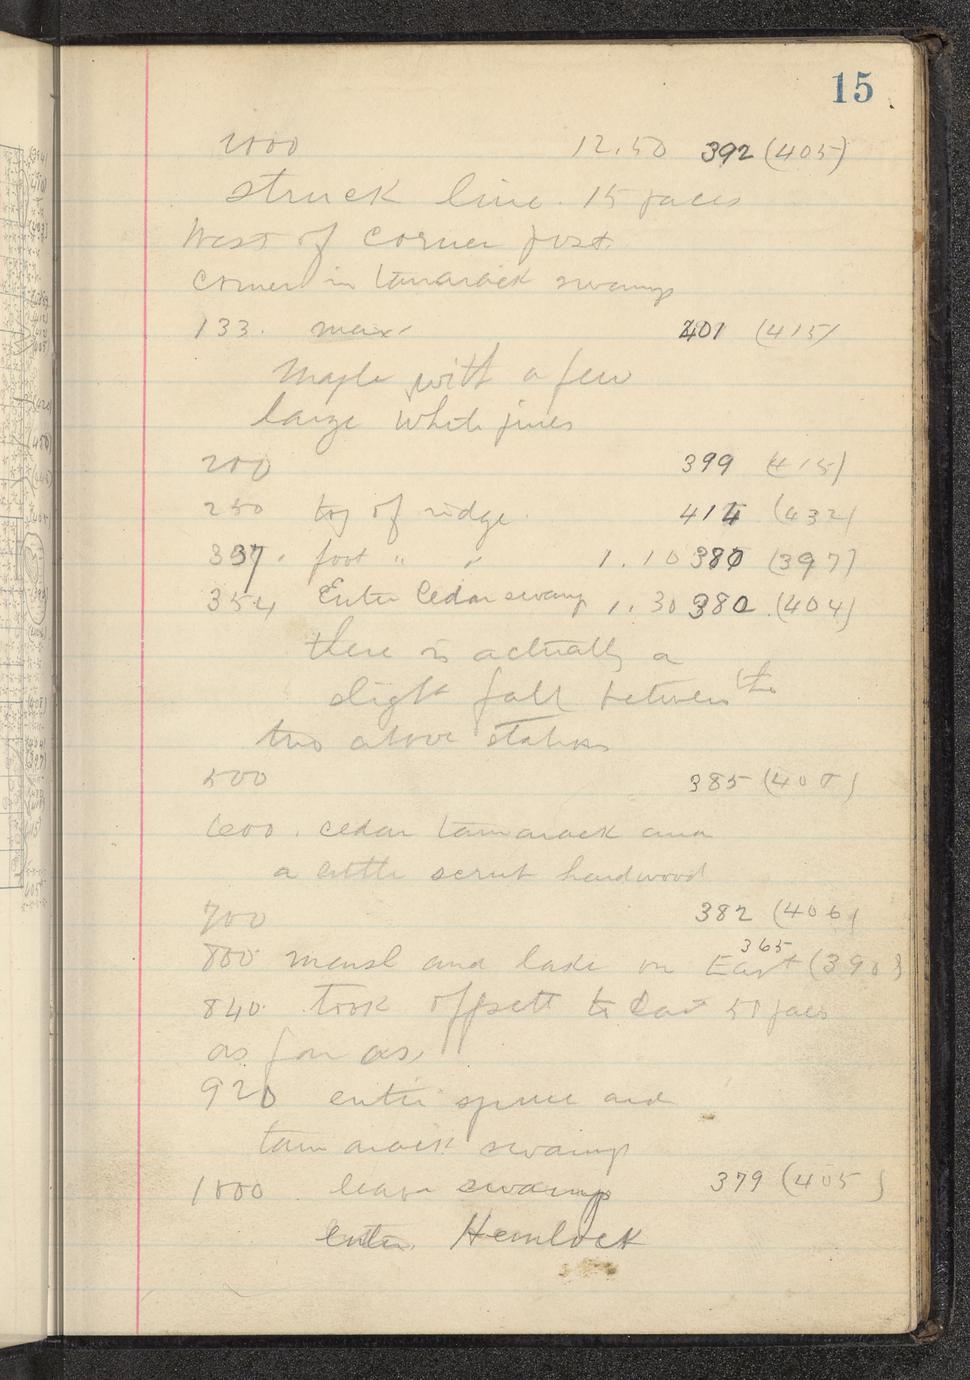 15
2000 12.50 392 (405)
struck line. 15 paces
West of corner post.
corner in tamarack swamp
133. max. 401 (415)
Maple with a few
large White pines
200 399 (415)
250 top of ridge. 414 (432)
337. foot " " 1.10 380 (397)
354 Enter Cedar swamp 1.30 380 (404)
there is actually a
slight fall between the
two above stations
500 385 (408)
600. cedar tamarack and
a little scrub hardwood
700 382 (406)
365
800 marsh and lake on East (390)
840. took offsett to East 50 paces
as far as,
920 enter spruce and
tamarack swamp
1000 leave swamp 379 (405)
enter Hemlock